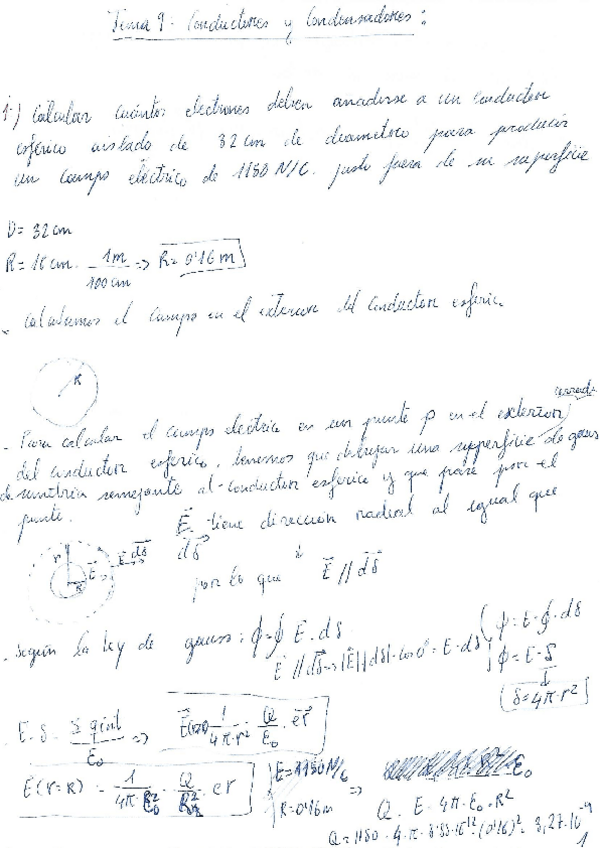 Tema 9 - Conductores y Condensadores:
1-) Calcular cuántos electrones deben añadirse a un conductor
esférico aislado de 32 cm de diámetro para producir
un campo eléctrico de 1180 N/C. justo fuera de su superficie
D = 32 cm
R = 16 cm · 1m/100 cm => R = 0'16 m
Calculamos el campo en el exterior del conductor esférico
R
- Para calcular el campo eléctrico en un punto p en el exterior
cerrada
del conductor esférico, tenemos que dibujar una superficie de gauss
de simetría semejante al conductor esférico y que pase por el
punto.
E tiene dirección radial al igual que
dS
por lo que E // dS
r R E dS
- Según la ley de gauss: ϕ = ∮ E · dS
E // dS => |E||dS| · cos 0° = E · dS
ϕ = E · ∮ dS
ϕ = E · S
S = 4π · r²
E · S = Σ qint / ε0 => E = 1/4π·r² · Q/ε0 · er
E (r=R) = 1/4π · Q/R² · er
E = 1180 N/C
R = 0'16 m
=>
Q = E · 4π · ε0 · R²
Q = 1180 · 4 · π · 8'85·10^-12 · (0'16)² = 3,27·10^-9
1